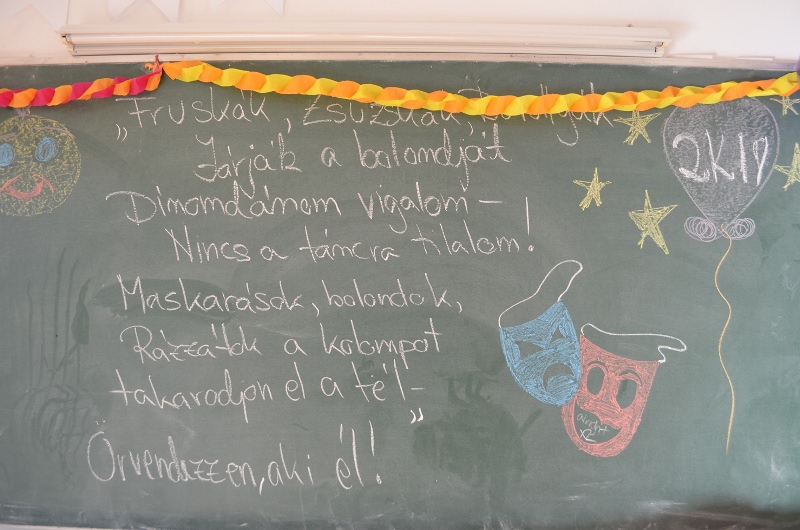 „Fruskák, Zsuzskák,
Járják a bolondját
Dínomdánom vígalom –
Nincs a táncra tilalom!
Maskarások, bolondok,
Rázzátok a kolompot
takarodjon el a tél –"
Örvendezzen, aki él!
2K18